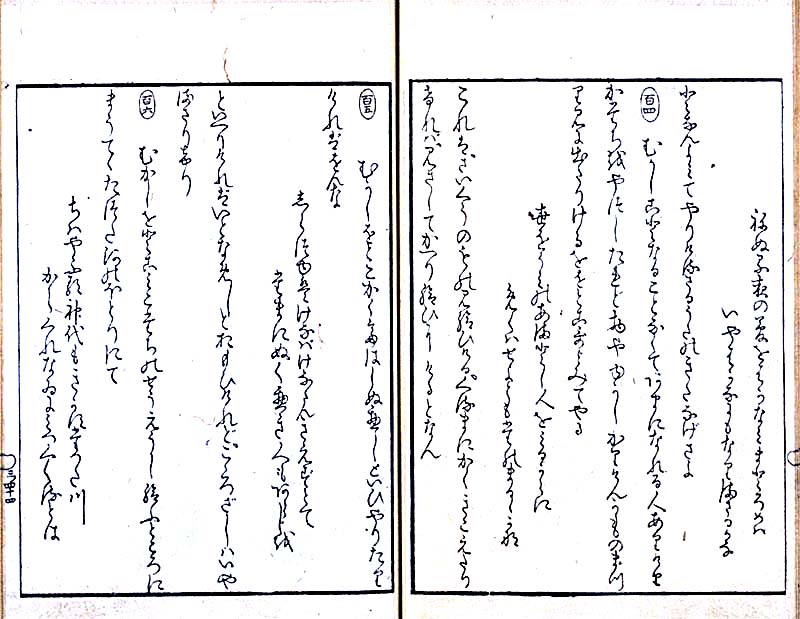 ねぬる夜の夢をはかなみまとろめは
いやはかなにもなりまさるかな
となんよみてやりけるさるうたのきたなけさよ
百四 むかしことなることなくてあまになれる人ありけり
かたちをやつしたれと物やゆかしかりけんかものまつ
り見にいてたりけるをおとこ哥よみてやる
世をうみのあまとし人をみるからに
めくはせよともたのまるゝかな
これはさいくうのものみ給ひけるくるまにかくきこえたり
けれはみさしてかへり給ひにけりとなん
百五 むかしおとこかくてはしぬへしといひやりたり
けれはをんな
しら露はけなはけなゝんきえすとて
たまにぬくへき人もあらしを
といへりけれはいとなめしとおもひけれとこゝろさしはいや
まさりけり
百六 むかしをとこみこたちのせうえうし給ふところに
まうてゝたつた河のほとりにて
ちはやふる神代もきかすたつた川
からくれなゐに水くゝるとは